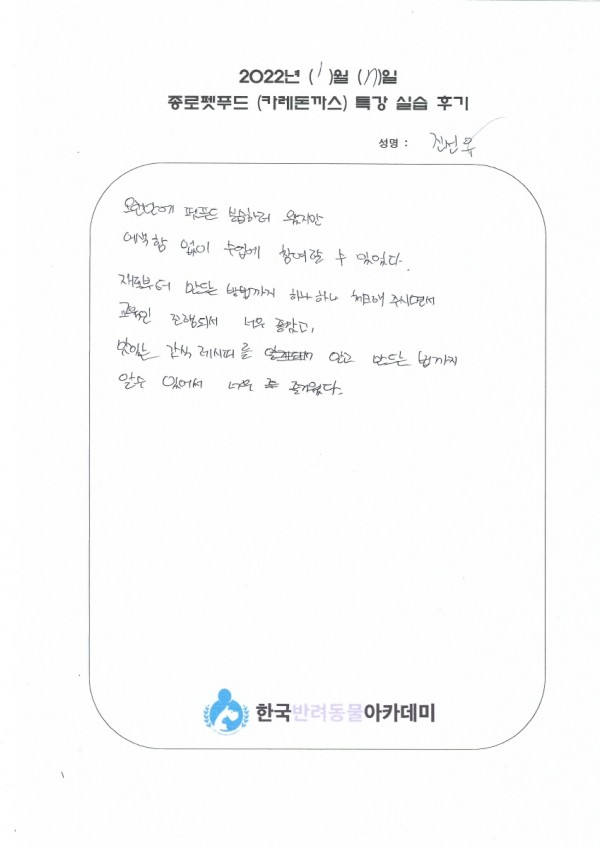 2022년 (1)월 (17)일
종로펫푸드 (카레돈까스) 특강 실습 후기
성명 : 진선우
오랜만에 펫푸드 실습하러 왔지만
어색함 없이 수업에 참여할 수 있었다.
재료부터 만드는 방법까지 하나하나 체크해 주시면서
진행되서 너무 좋았고,
맛있는 간식 레시피를 알고 만드는 법까지
알수 있어서 너무 즐거웠다.
한국반려동물아카데미